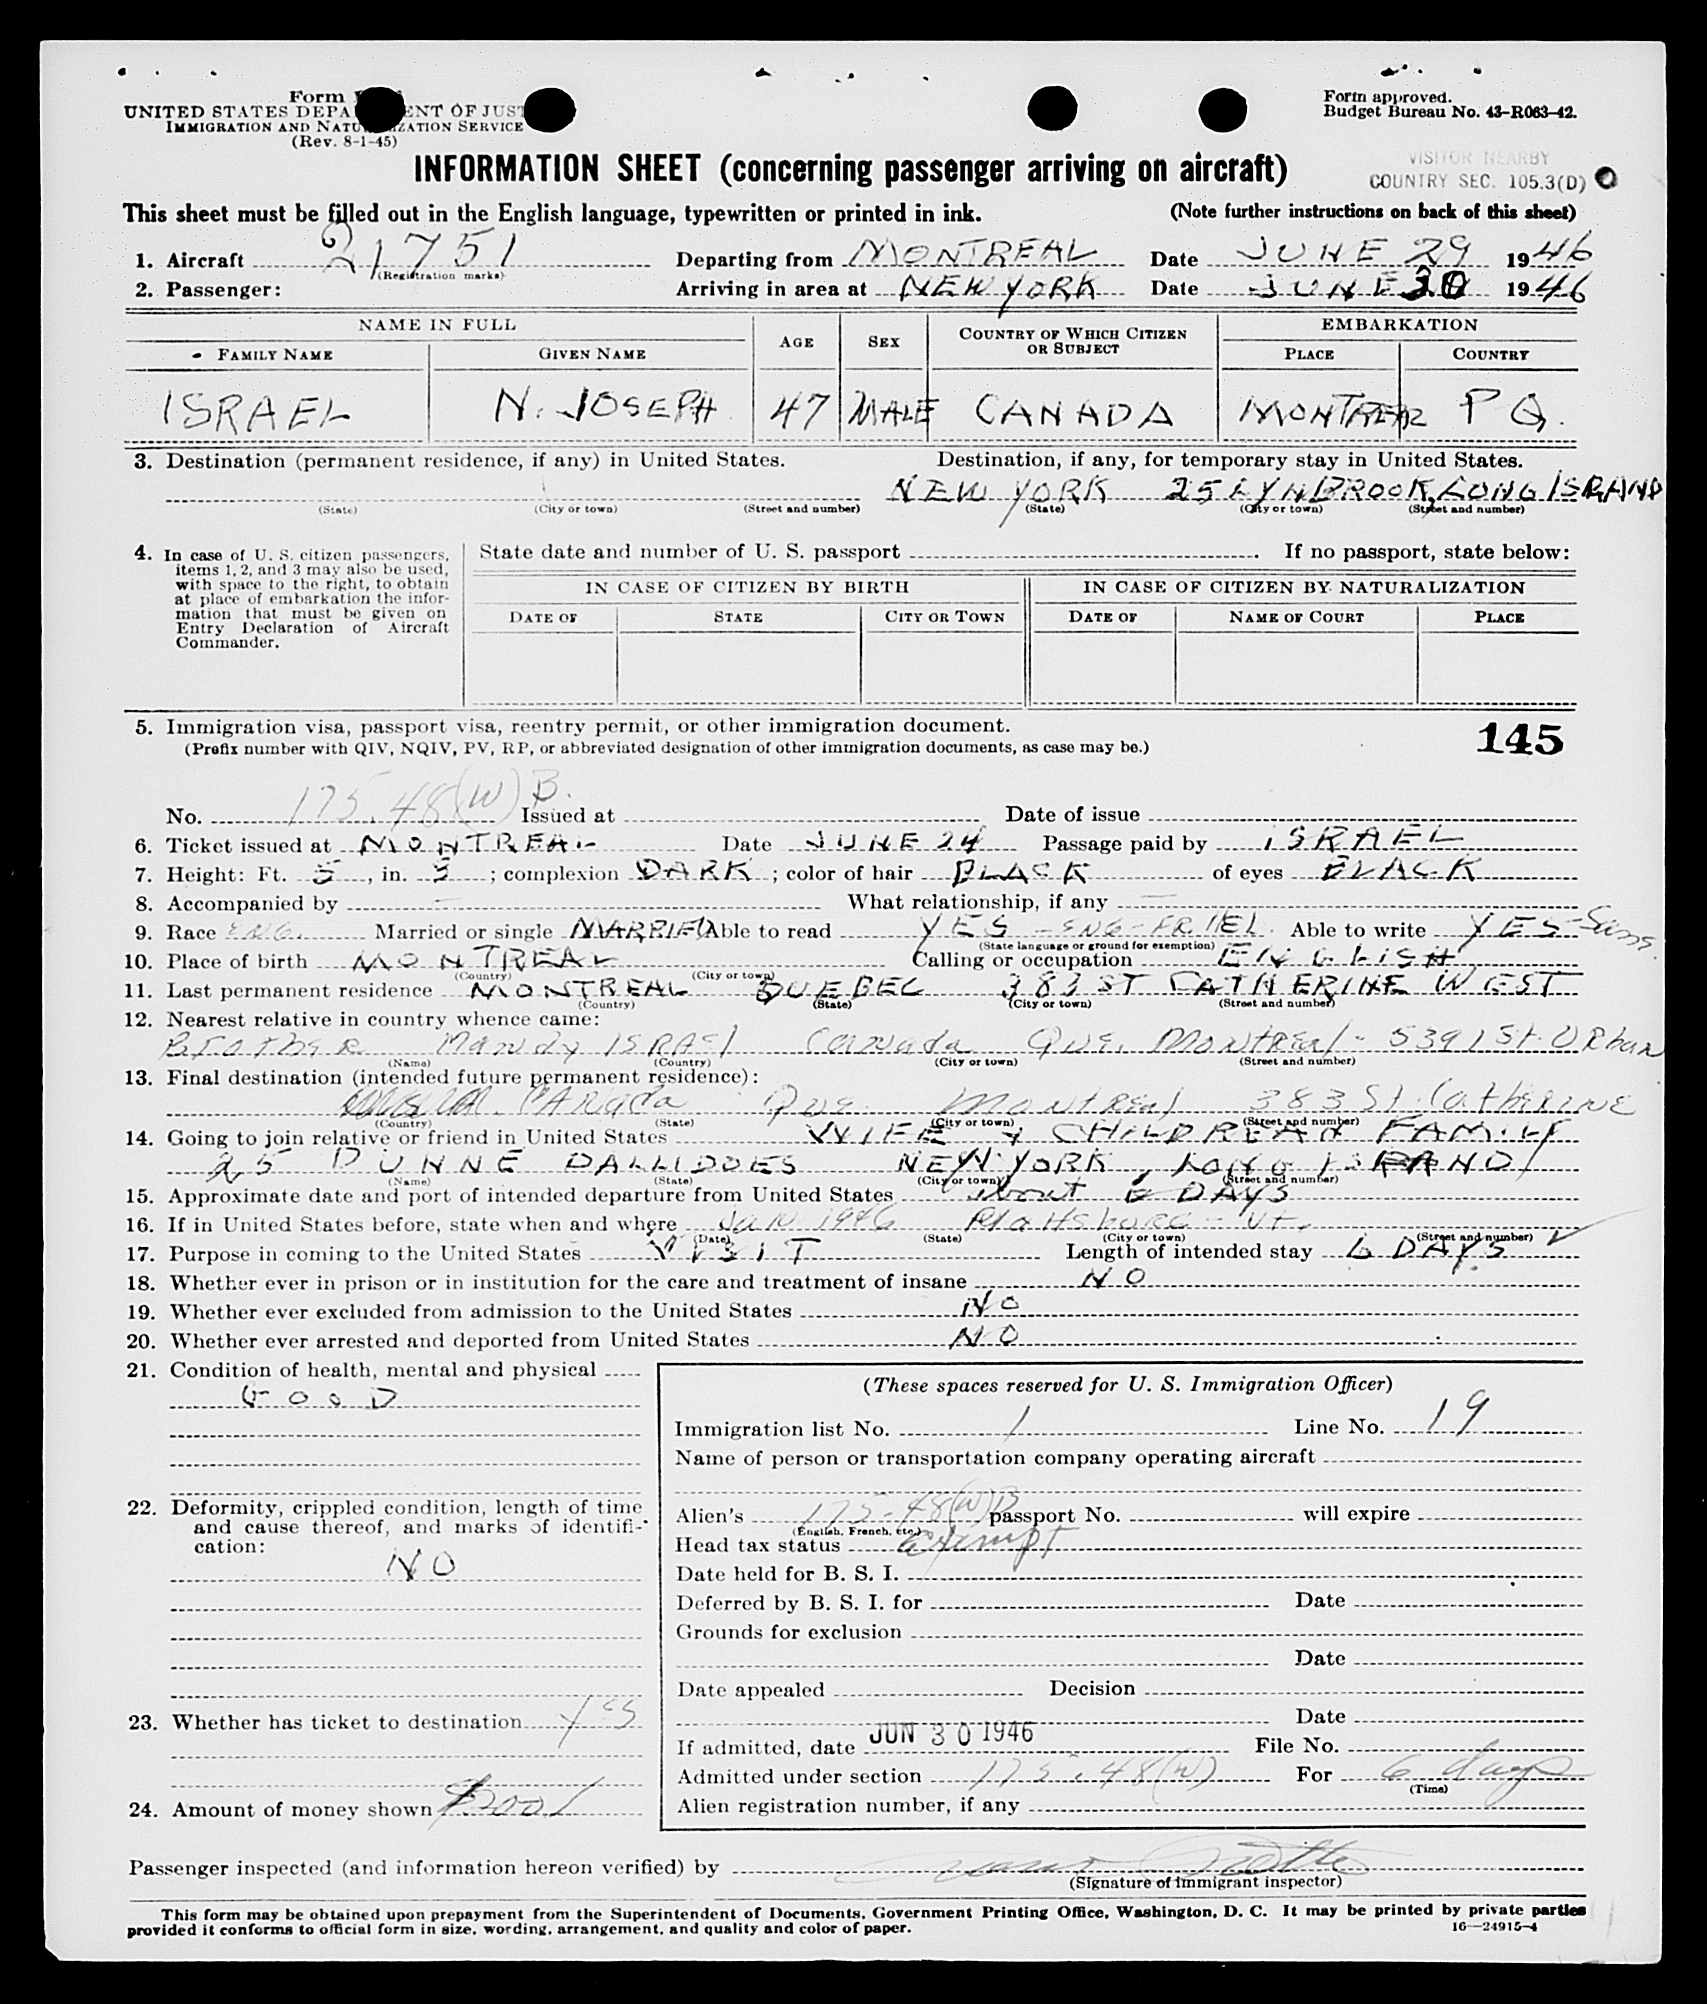 Form
UNITED STATES DEPA ENT OF JUST
IMMIGRATION AND NATU IZATION SERVICE
(Rev. 8-1-45)
Form approved.
Budget Bureau No. 43-R063-42.
INFORMATION SHEET (concerning passenger arriving on aircraft)
VISITOR NEARBY
COUNTRY SEC. 105.3(D)
This sheet must be filled out in the English language, typewritten or printed in ink. (Note further instructions on back of this sheet)
1. Aircraft 21751 Departing from MONTREAL Date JUNE 29 1946
(Registration marks)
2. Passenger: Arriving in area at NEW YORK Date JUNE 30 1946
NAME IN FULL AGE SEX COUNTRY OF WHICH CITIZEN OR SUBJECT EMBARKATION
FAMILY NAME GIVEN NAME PLACE COUNTRY
ISRAEL N. JOSEPH 47 MALE CANADA MONTREAL P Q.
3. Destination (permanent residence, if any) in United States. Destination, if any, for temporary stay in United States.
NEW YORK 25 LYNBROOK, LONG ISLAND
(State) (City or town) (Street and number) (State) (City or town) (Street and number)
4. In case of U. S. citizen passengers, items 1, 2, and 3 may also be used, with space to the right, to obtain at place of embarkation the information that must be given on Entry Declaration of Aircraft Commander.
State date and number of U. S. passport . If no passport, state below:
IN CASE OF CITIZEN BY BIRTH IN CASE OF CITIZEN BY NATURALIZATION
DATE OF STATE CITY OR TOWN DATE OF NAME OF COURT PLACE
5. Immigration visa, passport visa, reentry permit, or other immigration document. 145
(Prefix number with QIV, NQIV, PV, RP, or abbreviated designation of other immigration documents, as case may be.)
No. 175.48(W)B. Issued at Date of issue
6. Ticket issued at MONTREAL Date JUNE 24 Passage paid by ISRAEL
7. Height: Ft. 5, in. 3; complexion DARK; color of hair BLACK of eyes BLACK
8. Accompanied by — What relationship, if any —
9. Race ENG. Married or single MARRIED Able to read YES - ENG - FR. Able to write YES - Same
(State language or ground for exemption)
10. Place of birth MONTREAL Calling or occupation ENGLISH
(Country) (City or town)
11. Last permanent residence MONTREAL QUEBEC 383 ST CATHERINE WEST
(Country) (State) (City or town) (Street and number)
12. Nearest relative in country whence came:
Brother Mandy ISRAEl Canada Que. Montreal - 5391 St. Urban
(Name) (Country) (City or town) (Street and number)
13. Final destination (intended future permanent residence):
CANada Que Montreal 383 St. Catherine
(Country) (State) (City or town) (Street and number)
14. Going to join relative or friend in United States WIFE & CHILDREAN FAMILY
25 DUNNE NEW YORK, LONG ISLAND
(Name) (State) (City or town) (Street and number)
15. Approximate date and port of intended departure from United States about 6 DAYS
16. If in United States before, state when and where Jan 1946 Plattsburg - Vt.
(Date) (State) (City or town) (Street and number)
17. Purpose in coming to the United States VISIT Length of intended stay 6 DAYS
18. Whether ever in prison or in institution for the care and treatment of insane NO
19. Whether ever excluded from admission to the United States NO
20. Whether ever arrested and deported from United States NO
21. Condition of health, mental and physical
GOOD
22. Deformity, crippled condition, length of time and cause thereof, and marks of identification:
NO
23. Whether has ticket to destination Yes
24. Amount of money shown $200
(These spaces reserved for U. S. Immigration Officer)
Immigration list No. 1 Line No. 19
Name of person or transportation company operating aircraft
Alien's 175-48(W)B passport No. will expire
(English, French, etc.)
Head tax status exempt
Date held for B. S. I.
Deferred by B. S. I. for Date
Grounds for exclusion
Date
Date appealed Decision
Date
If admitted, date JUN 30 1946 File No.
Admitted under section 175.48(W) For 6 days
(Time)
Alien registration number, if any
Passenger inspected (and information hereon verified) by
(Signature of immigrant inspector)
This form may be obtained upon prepayment from the Superintendent of Documents, Government Printing Office, Washington, D. C. It may be printed by private parties
provided it conforms to official form in size, wording, arrangement, and quality and color of paper. 16—24915-4